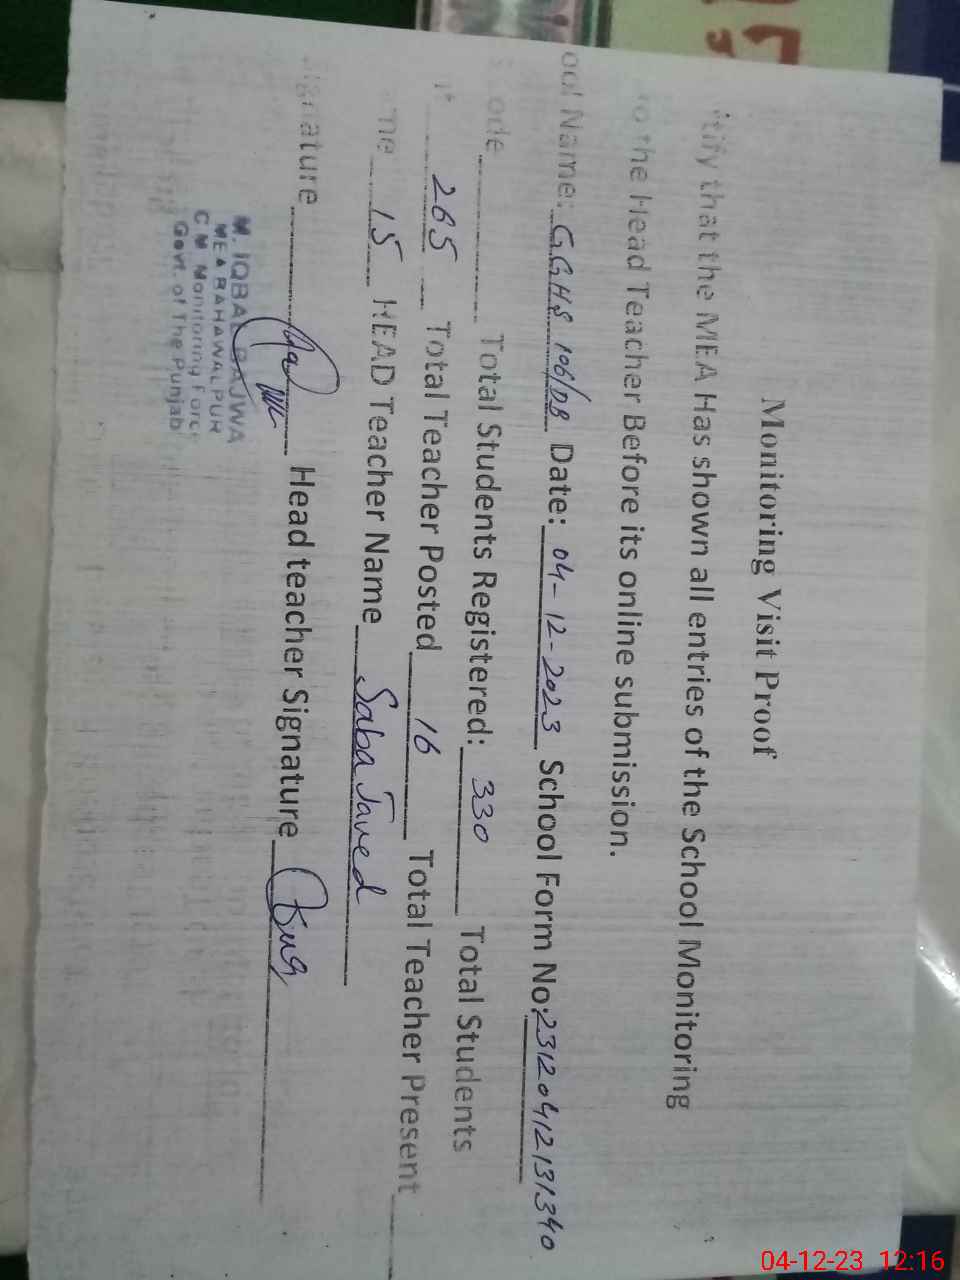 Monitoring Visit Proof
tify that the MEA Has shown all entries of the School Monitoring
to the Head Teacher Before its online submission.
ool Name: GGHS 106/DB Date: 04-12-2023 School Form No: 23120412131340
ode Total Students Registered: 330 Total Students
265 Total Teacher Posted 16 Total Teacher Present
me 15 HEAD Teacher Name Saba Javed
ignature Head teacher Signature
M. IQBAL BAJWA
MEA BAHAWALPUR
C M Monitoring Force
Govt. of The Punjab
04-12-23 12:16